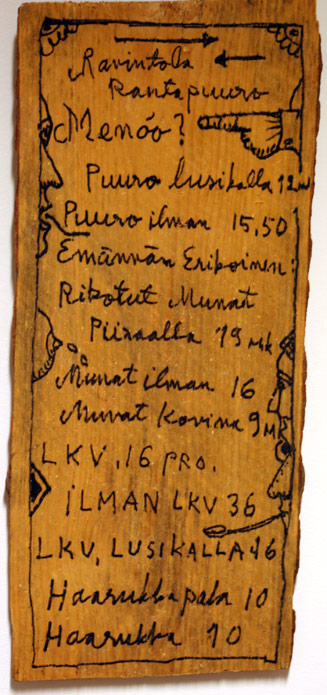 Ravintola
Rantapuuro
Menóo?
Puuro lusikalla 12
Puuro ilman 15,50
Emännän Erikoinen:
Rikotut Munat
Piiraalla 19 mk
Munat ilman 16
Munat Kovina 9 M
LKV, 16 PRO.
ILMAN LKV 36
LKV, LUSIKALLA 46
Haarukka pala 10
Haarukka 10